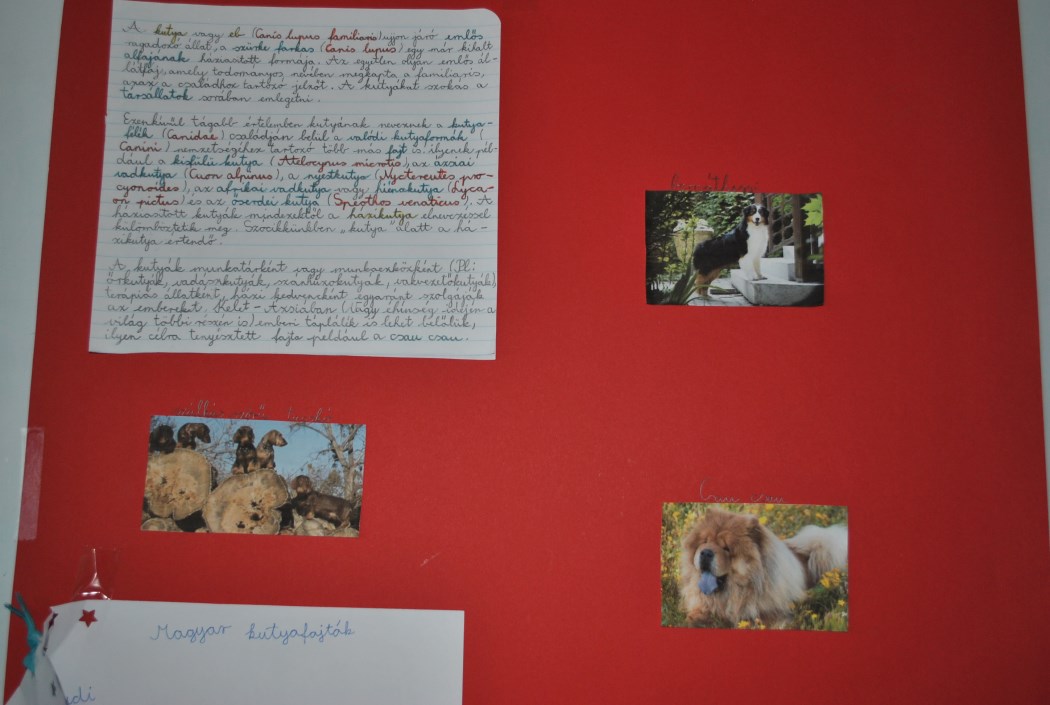 A kutya vagy eb (Canis lupus familiaris) ujjon járó emlős
ragadozó állat, a szürke farkas (Canis lupus) egy már kihalt
alfajának háziasított formája. Az egyetlen olyan emlős ál-
latfaj, amely todományos nevében megkapta a familiaris,
azaz a családhoz tartozó jelzőt. A kutyákat szokás a
társállatok sorában emlegetni.
Ezenkívül tágabb értelemben kutyának neveznek a kutya-
félék (Canidae) családján belül a valódi kutyaformák (
Canini) nemzetségéhez tartozó több más fajt is: ilyenek pél-
dául a kisfülű kutya (Atelocynus microtis), az ázsiai
vadkutya (Cuon alpinus), a nyestkutya (Nyctereutes pro-
cyonoides), az afrikai vadkutya vagy hiénakutya (Lyca-
on pictus) és az őserdei kutya (Speothos venaticus). A
háziasított kutyák mindezektől a házikutya elnevezéssel
külömböztetik meg. Szócikkünkben "kutya" alatt a há-
zikutya értendő.
A kutyák munkatárként vagy munkaeszközként (Pl:
őrkutyák, vadászkutyák, szánhúzókutyák, vakvezetőkutyák)
terápiás állatként, házi kedvencként egyaránt szolgálják
az embereket. Kelet-Ázsiában (Vagy éhinség idején a
világ többi részén is) emberi táplálék is lehet belőlük,
ilyen célra tenyésztett fajta például a csau csau.
Csau csau
Magyar kutyafajták